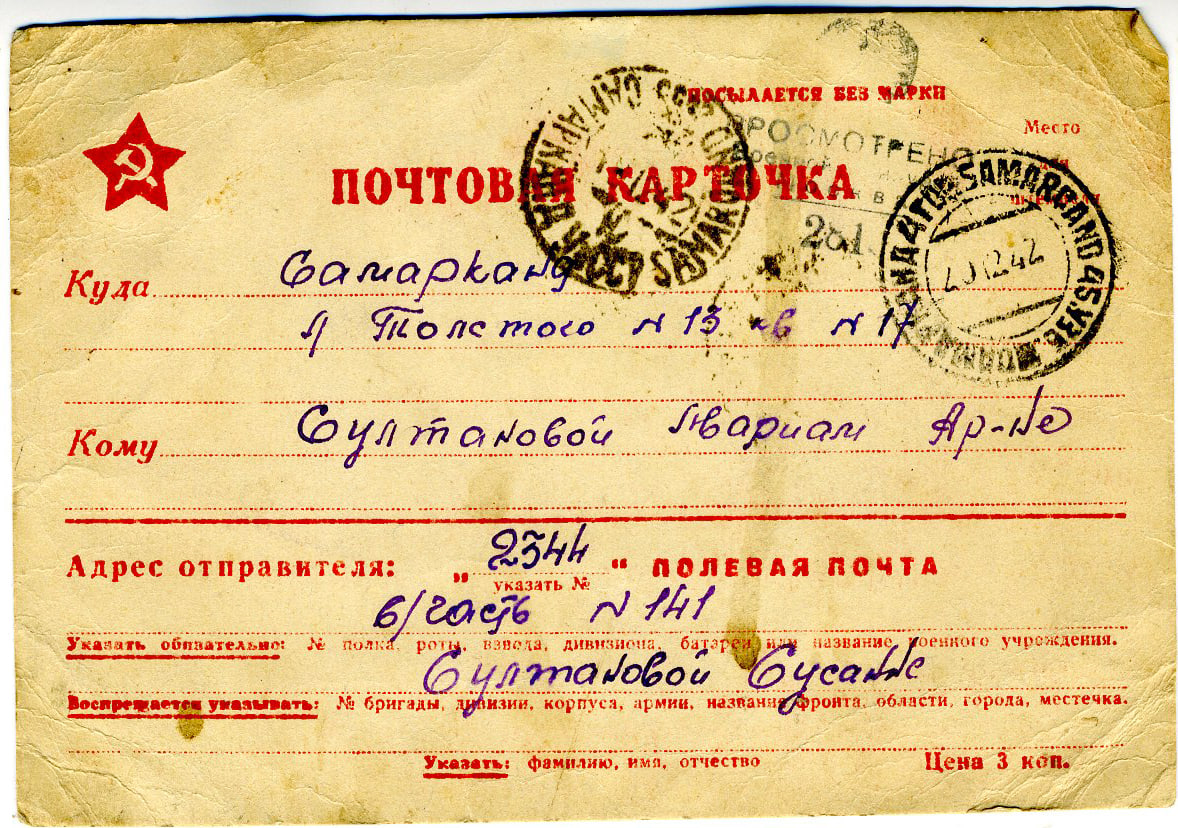 ПОСЫЛАЕТСЯ БЕЗ МАРКИ
Место
ПРОСМОТРЕНО
ПОЧТОВАЯ КАРТОЧКА
281
САМАРКАНД СССР SAMARKAND
SAMARCAND 4 УЗБ.
20 12 42
Куда Самарканд
Л Толстого N 13 кв N 17
Кому Султановой Мариам Ар-не
Адрес отправителя: „ 2344 “ ПОЛЕВАЯ ПОЧТА
указать №
в/часть N 141
Указать обязательно: № полка, роты, взвода, дивизиона, батареи или название военного учреждения.
Султановой Сусанне
Воспрещается указывать: № бригады, дивизии, корпуса, армии, название фронта, области, города, местечка.
Указать: фамилию, имя, отчество
Цена 3 коп.